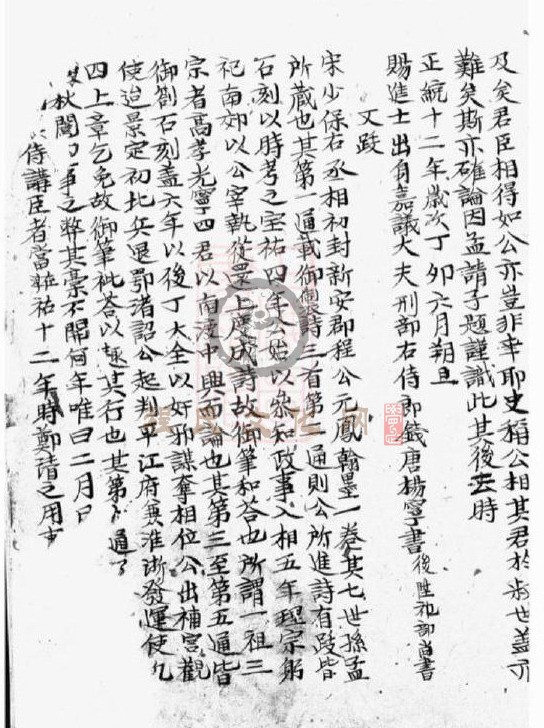 及矣君臣相得如公亦豈非幸耶史稱公相其君於叔世蓋亦
難矣斯亦確論因孟請予題謹識此其後云時
正統十二年歲次丁卯六月朔旦
賜進士出身嘉議大夫刑部右侍郎錢唐楊寧書後陞礼部尚書
又跋
宋少保右丞相初封新安郡程公元鳳翰墨一卷其七世孫孟
所藏也其第一通載御製詩三首第二通則公所進詩有跋皆
石刻以時考之宝祐四年公始以參知政事入相五年理宗躬
祀南郊以公宰執從還上慶成詩故御筆和答也所謂一祖三
宗者高孝光寧四君以南渡中興而論也其第三至第五通皆
御劄石刻蓋六年以後丁大全以奸邪謀奪相位公出補宮觀
使迨景定初北兵退鄂渚詔公起判平江府兼淮浙發運使凡
四上章乞免故御筆批答以趣其行也其第 通
秋闈 事之弊其毫不開何年唯曰二月
侍講臣者當 祐十二年時鄭清之用事